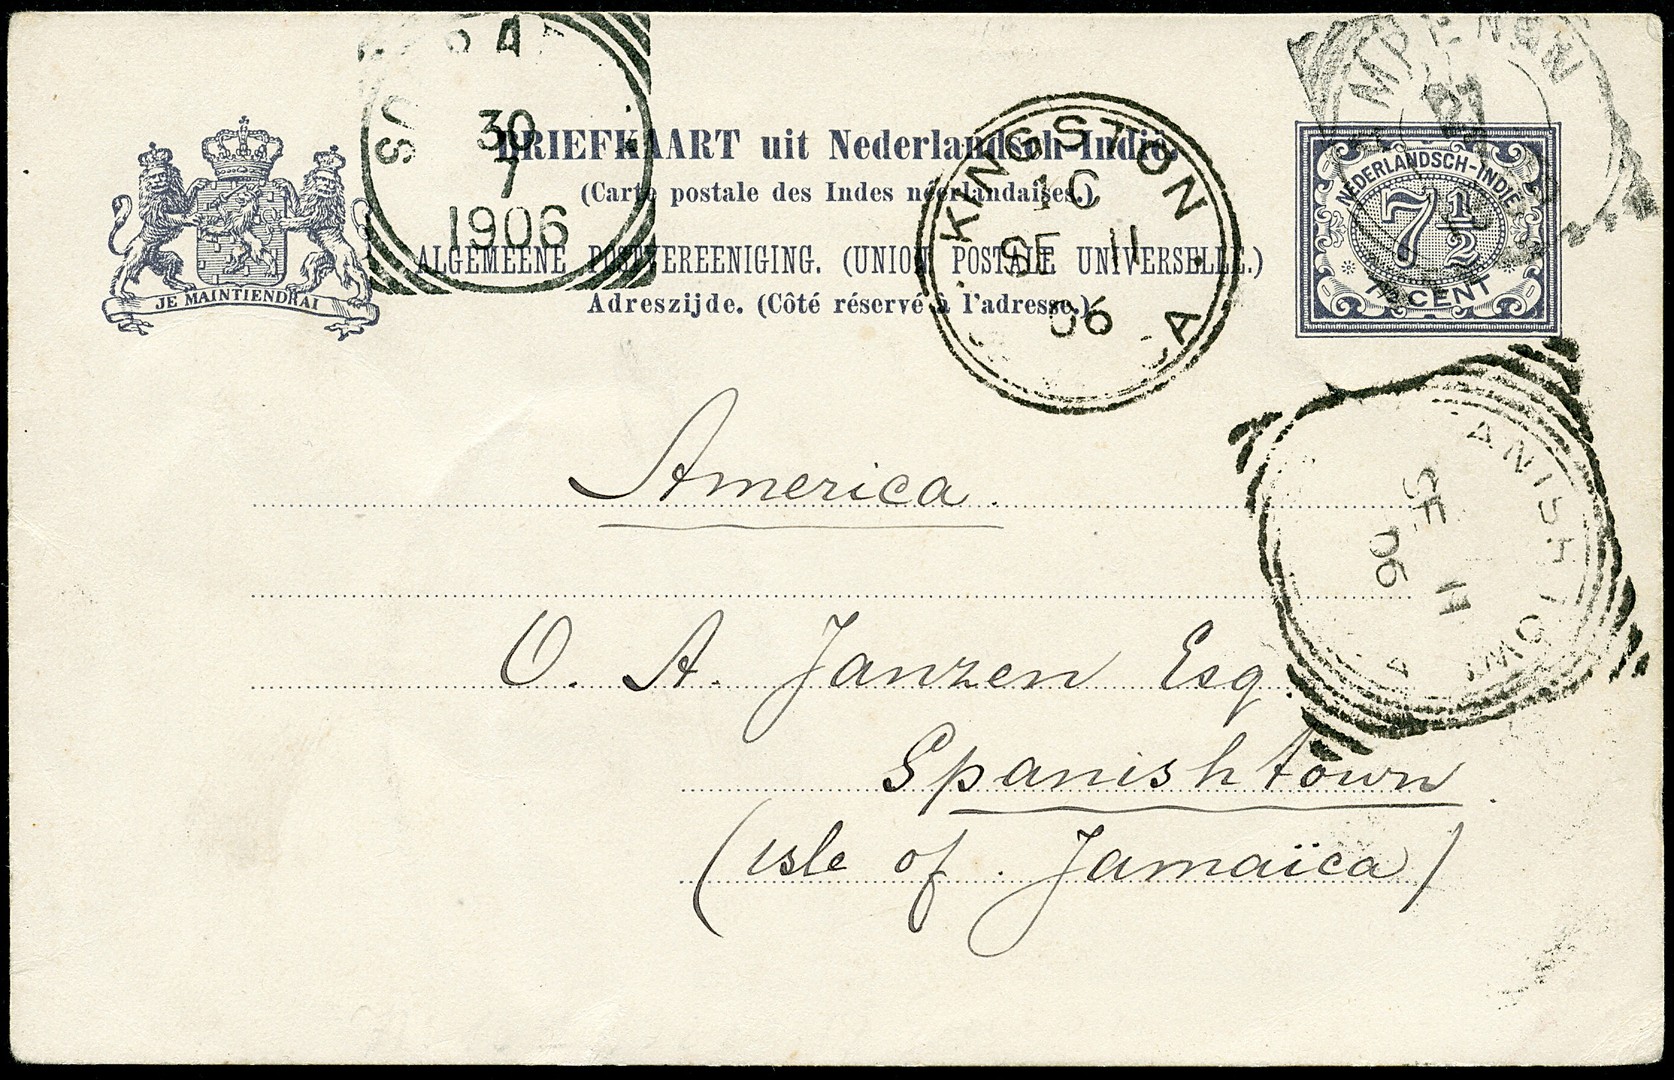 BRIEFKAART uit Nederlandsch-Indië.
(Carte postale des Indes néerlandaises.)
ALGEMEENE POSTVEREENIGING. (UNION POSTALE UNIVERSELLE.)
Adreszijde. (Côté réservé à l'adresse.)
JE MAINTIENDRAI
30
7
1906
KINGSTON
1C
SE 11
06
A
MPENAN
27
NEDERLANDSCH-INDIE
7½
7½ CENT
ANISH TOWN
SE 11
06
A
America.
O. A. Janzen Esq.
Spanishtown.
(isle of Jamaïca)